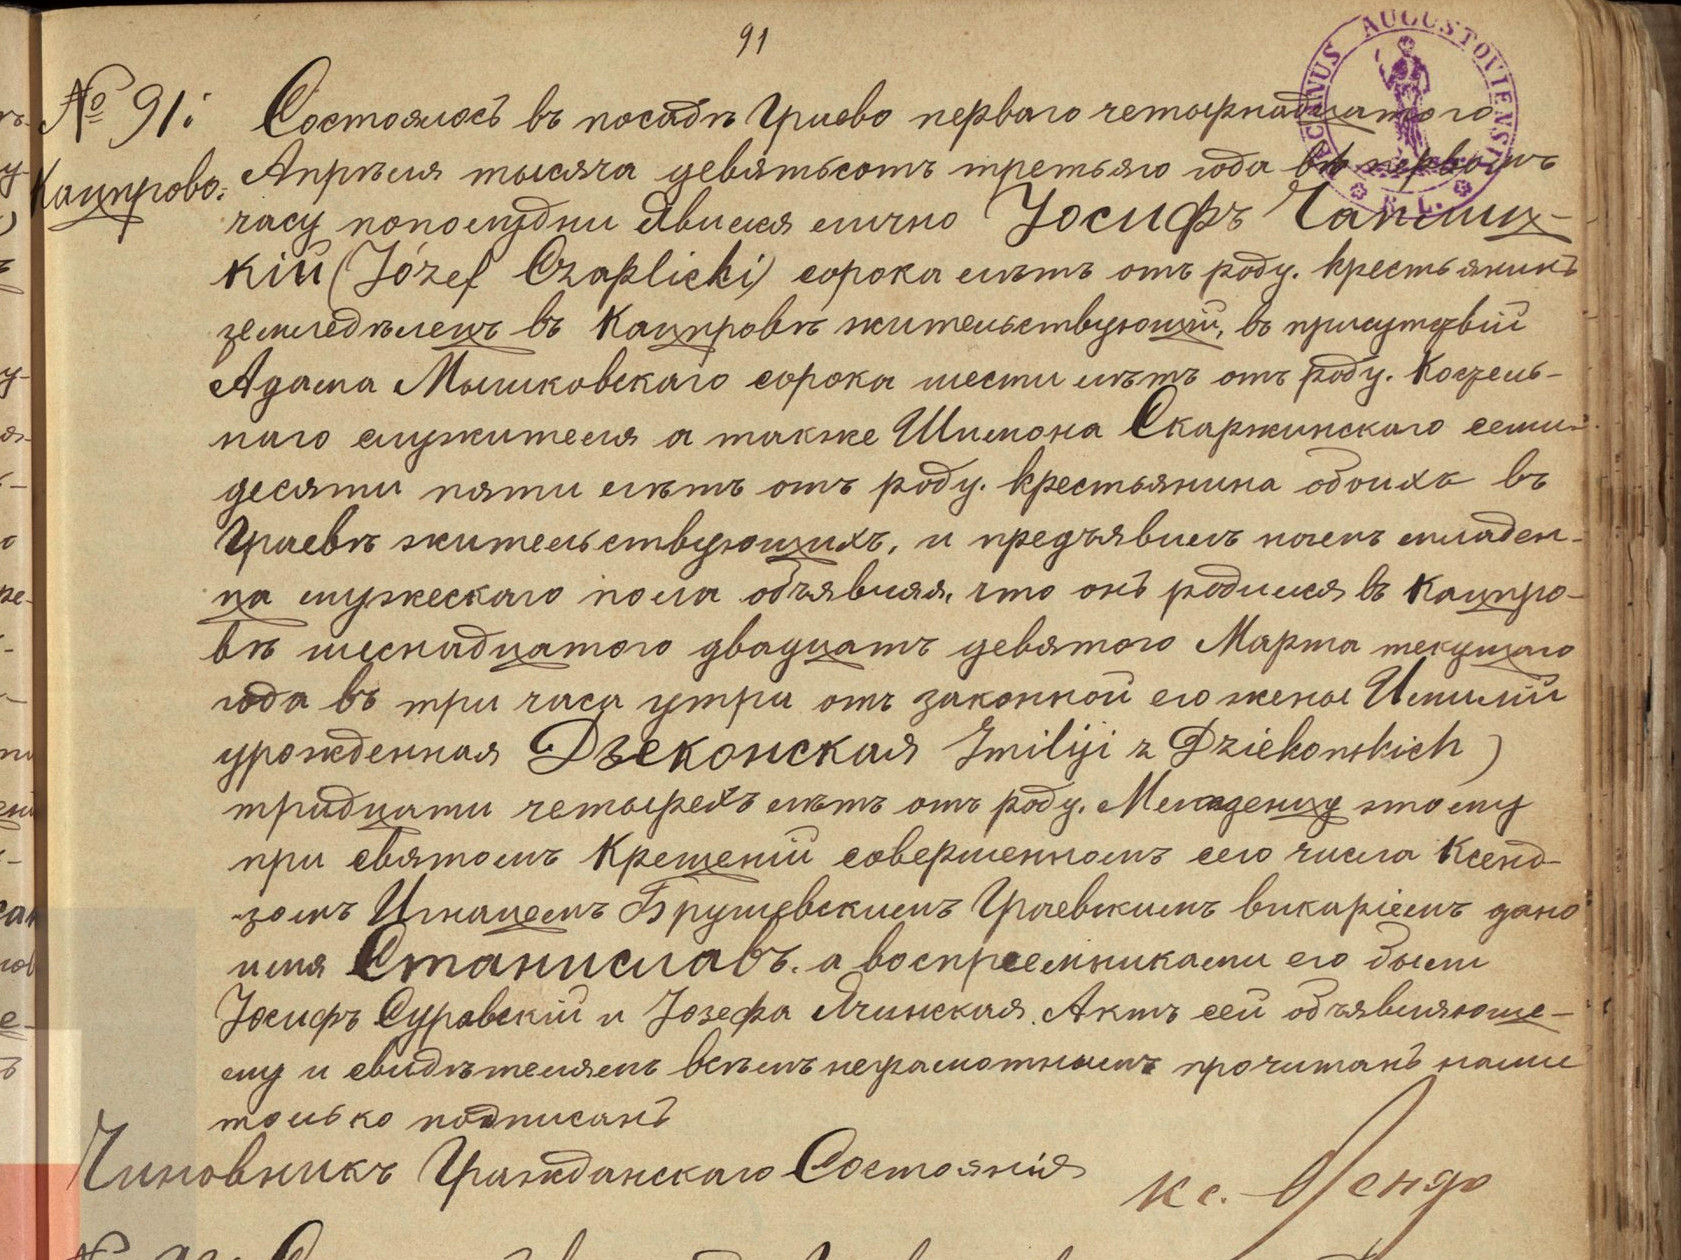 91
№ 91.
Кацпрово.
Состоялось въ посадѣ Граево перваго четырнадцатого
Апрѣля тысяча девятьсотъ третьяго года въ первомъ
часу пополудни Явился лично Іосифъ Чаплиц-
кій (Józef Czaplicki) сорока лѣтъ отъ роду. крестьянинъ
земледѣлецъ въ Кацпровѣ жительствующій, въ присутствіи
Адама Мышковскаго сорока шести лѣтъ отъ роду. Косцель-
наго служителя а также Шимона Скаржинскаго семи-
десяти пяти лѣтъ отъ роду. крестьянина обоихъ въ
Граевѣ жительствующихъ, и предъявилъ намъ младен-
ца мужескаго пола объявляя, что онъ родился въ Кацпро-
вѣ шеснадцатого двадцать девятого Марта текущаго
года въ три часа утра отъ законной его жены Имиліи
урожденная Дзеконская Imiliji z Dziekonskich)
тридцати четырехъ лѣтъ отъ роду. Младенцу этому
при святомъ Крещеніи совершенномъ сего числа Ксенд-
зомъ Игнацемъ Граевскимъ викаріемъ дано
имя Станиславъ. а воспреемниками его были
Іосифъ Суровскій и Іозефа Ячинская. Актъ сей объявляюще-
му и свидѣтелямъ всѣмъ неграмотнымъ прочитанъ нами
только подписанъ
Чиновникъ Гражданскаго Состоянія
Кс.
ACINUS AUGUSTOVIENSI